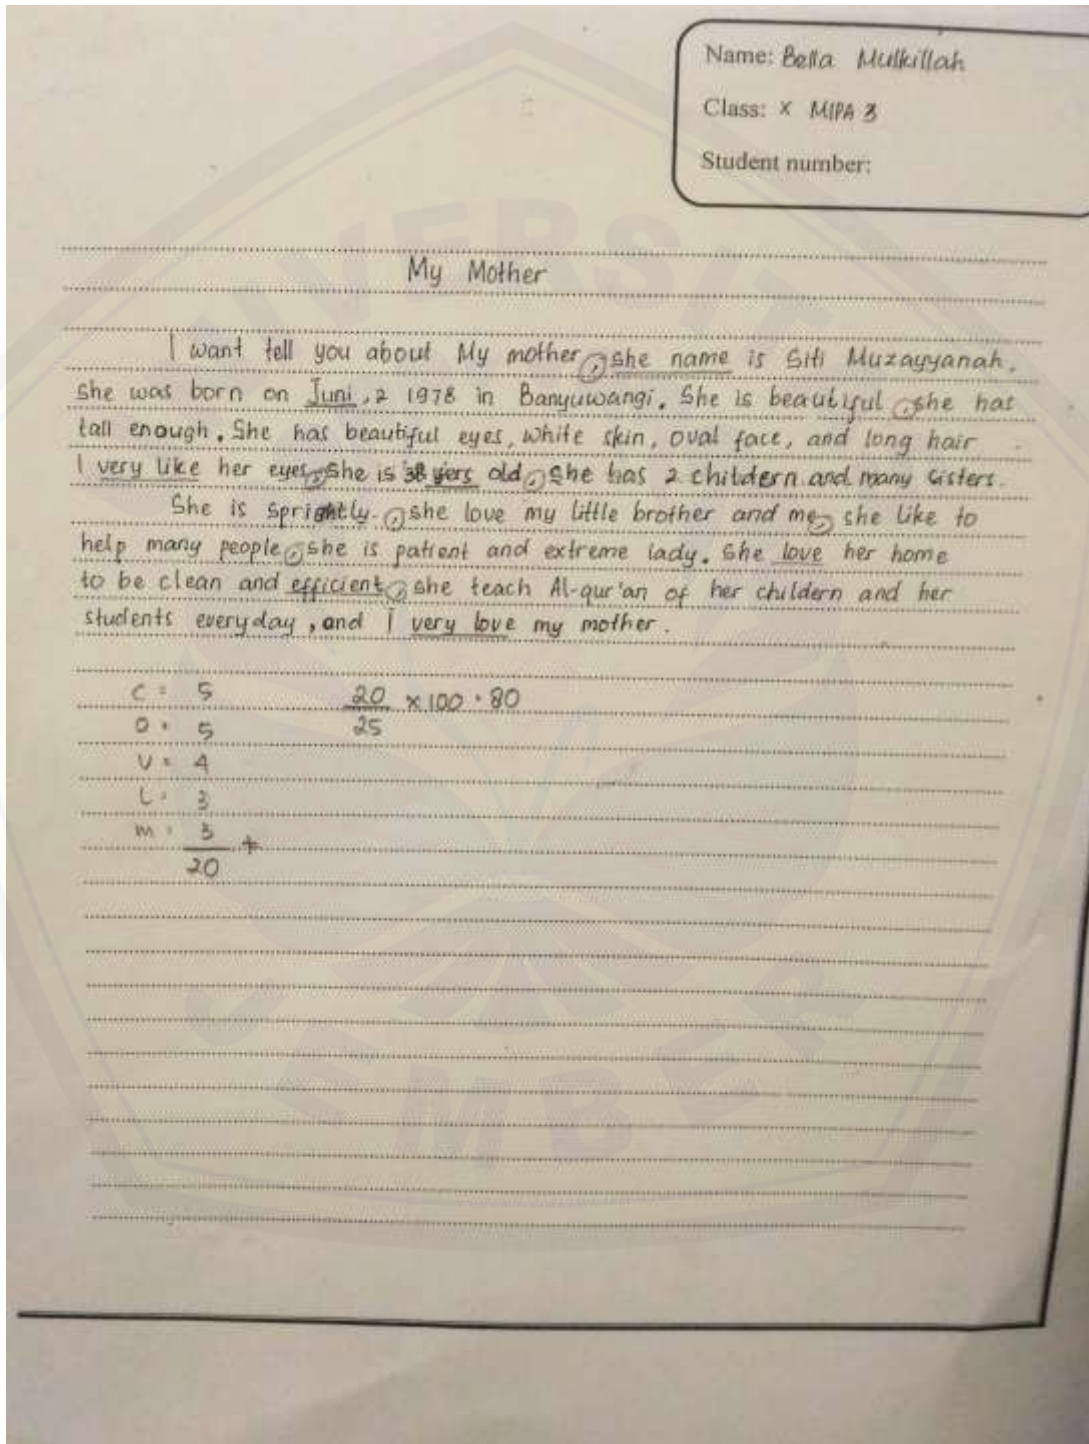 Name: Bella Mulkillah
Class: X MIPA 3
Student number:
My Mother
I want tell you about My mother, she name is Siti Muzayyanah.
She was born on Juni, 2 1978 in Banyuwangi. She is beautiful, she has
tall enough. She has beautiful eyes, white skin, oval face, and long hair.
I very like her eyes, She is 38 yers old, She has 2 childern and many sisters.
She is sprightly, she love my little brother and me, she like to
help many people, she is patient and extreme lady. She love her home
to be clean and efficient, she teach Al-qur'an of her childern and her
students everyday, and I very love my mother.
C = 5 20/25 x 100 = 80
O = 5
V = 4
L = 3
m = 3 +
20